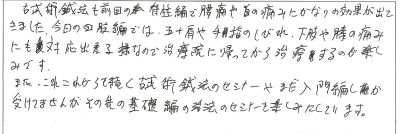 古式術鍼法も前回の脊柱編で腰痛や首の痛みにかなりの効果が出て
きました。今日の四肢編では、五十肩や手指のしびれ、下肢や膝の痛み
にも対応出来る様なので治療院に帰ってから治療するのが楽し
みです。
また、これからも続く古式術鍼法のセミナーやまだ入門編しか
受けてませんがその他の基礎編の治法のセミナーも楽しみにしています。